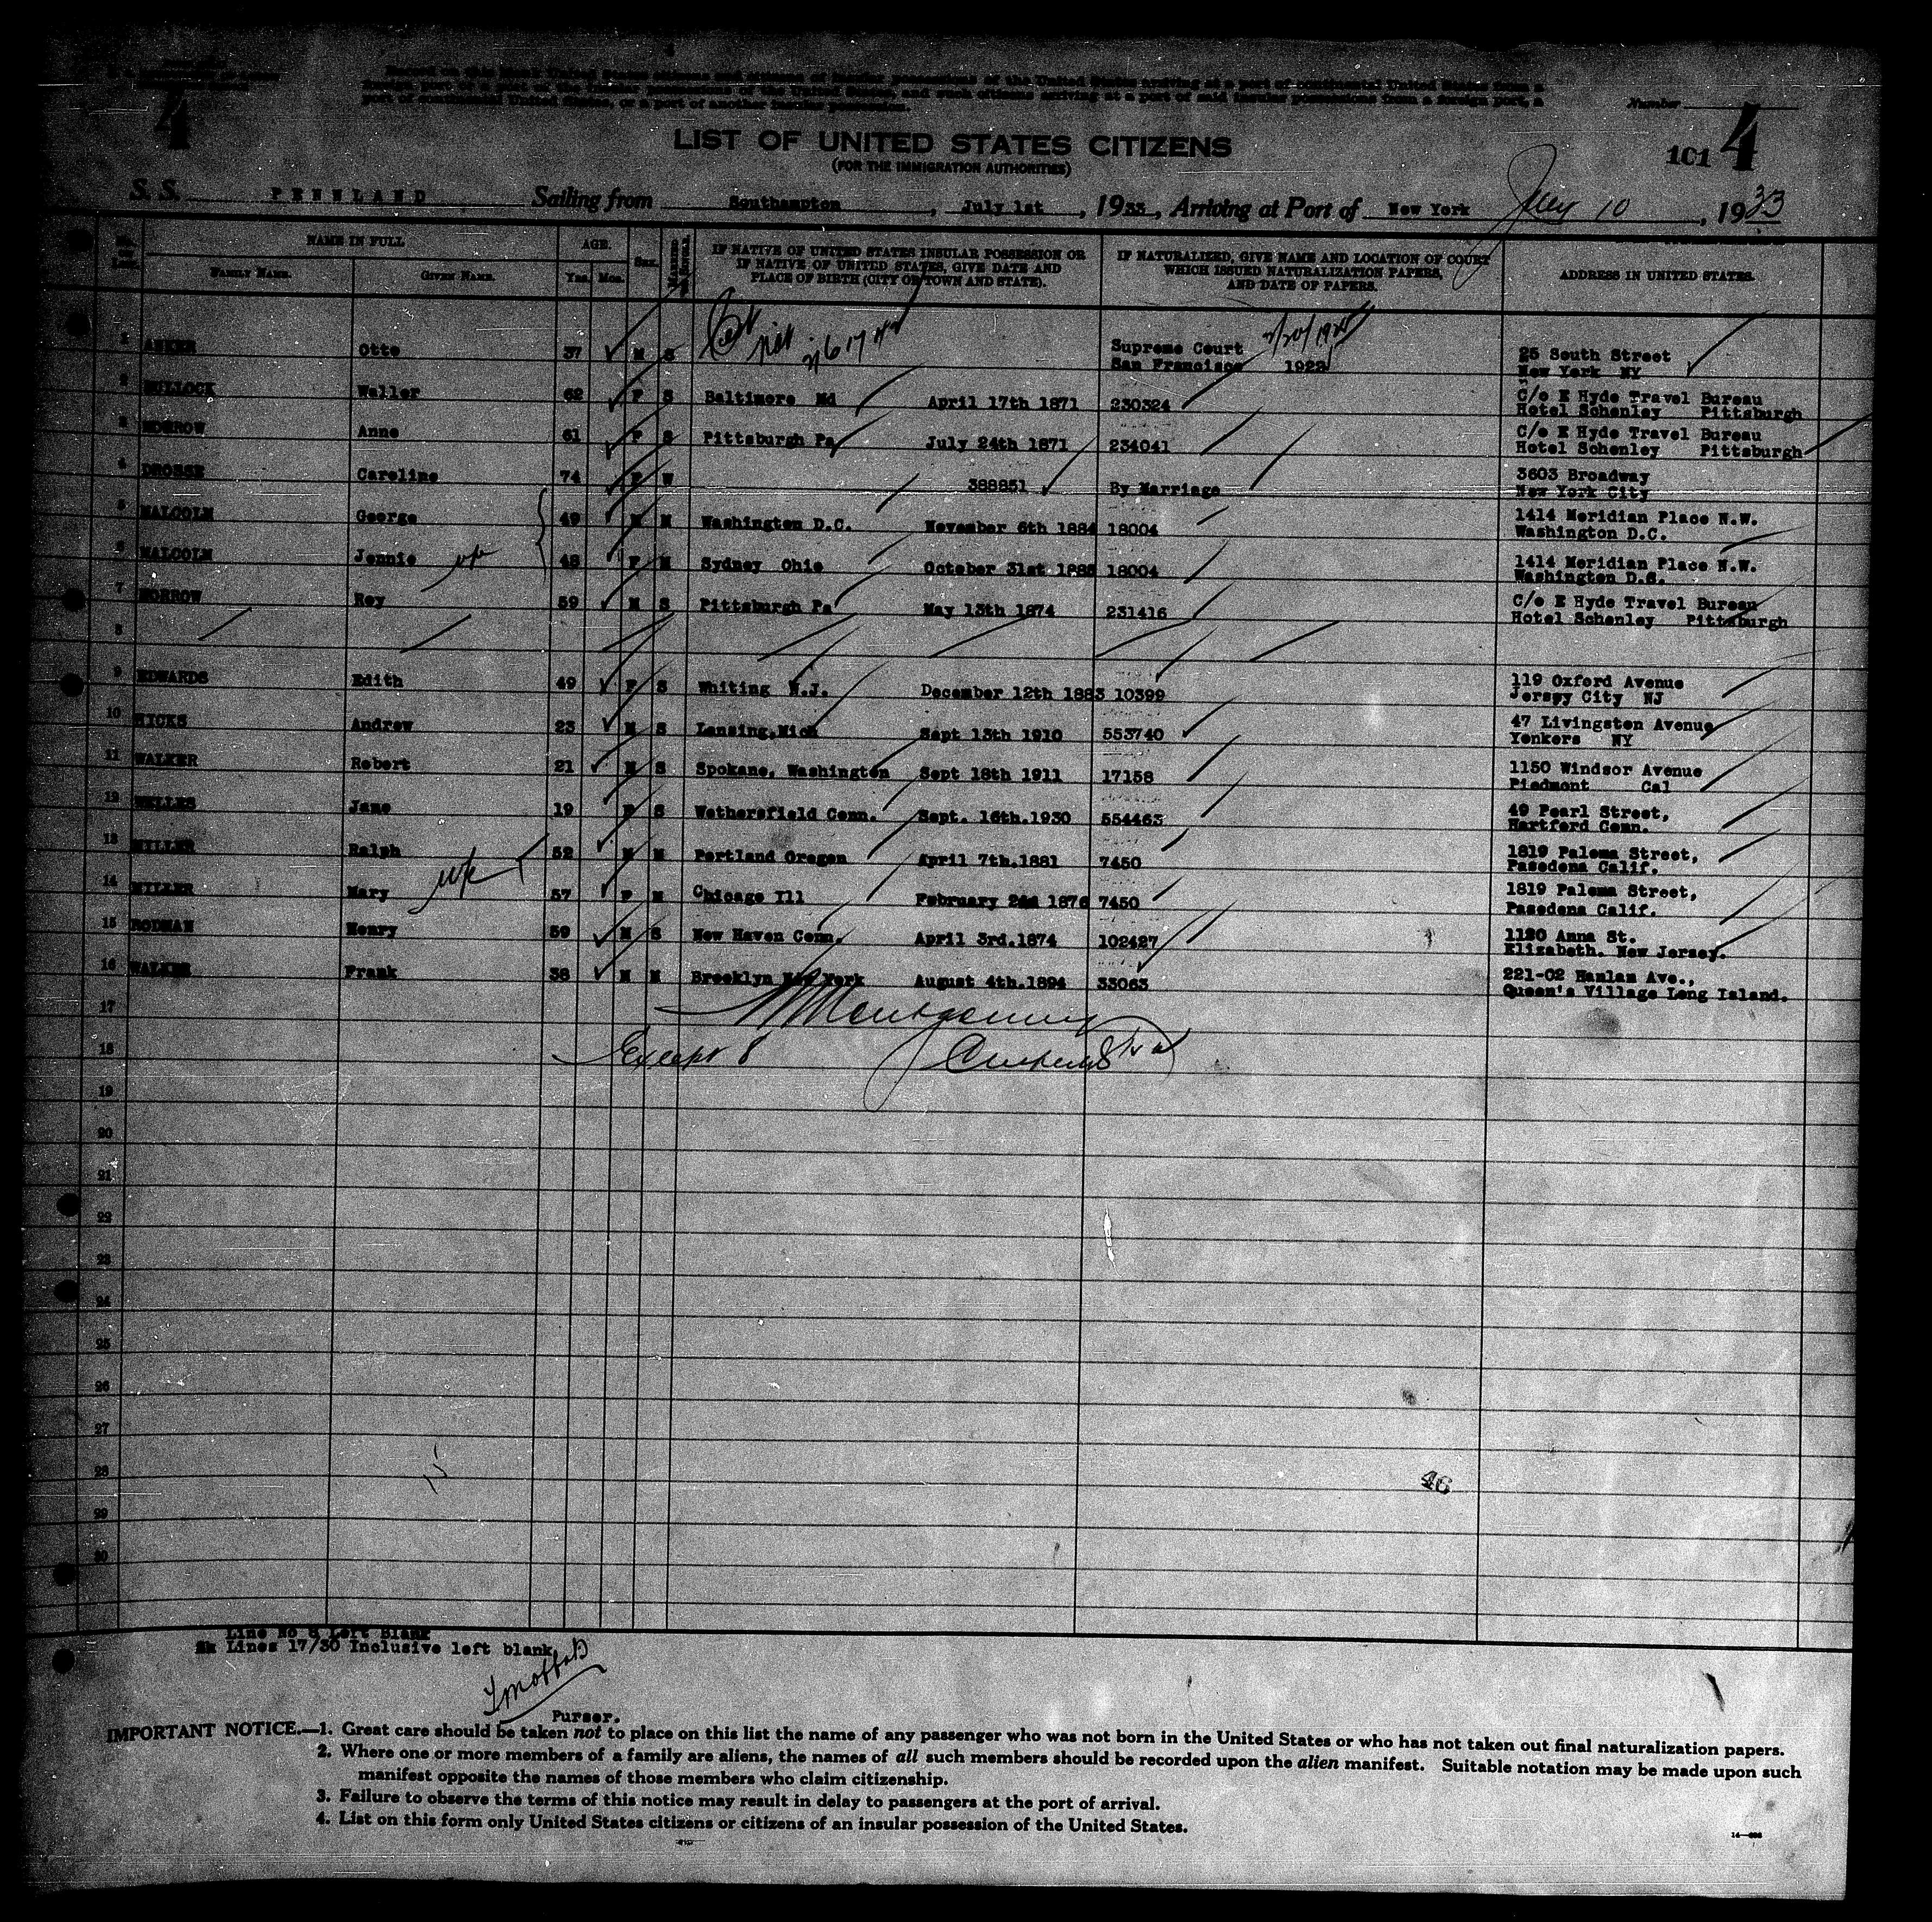 4
port of continental United States, or a port of another insular possession.
Number
LIST OF UNITED STATES CITIZENS
(FOR THE IMMIGRATION AUTHORITIES)
101 4
S. S. PENNLAND Sailing from Southampton, July 1st, 1933, Arriving at Port of New York July 10, 1933
No. on List.
NAME IN FULL
FAMILY NAME. GIVEN NAME.
AGE.
Yrs. Mos.
Sex.
IF NATIVE OF UNITED STATES INSULAR POSSESSION OR
IF NATIVE OF UNITED STATES, GIVE DATE AND
PLACE OF BIRTH (CITY OR TOWN AND STATE).
IF NATURALIZED, GIVE NAME AND LOCATION OF COURT
WHICH ISSUED NATURALIZATION PAPERS,
AND DATE OF PAPERS.
ADDRESS IN UNITED STATES.
1 ANKER Otto 37 M S Supreme Court 25 South Street
San Francisco 1922 New York NY
2 BULLOCK Waller 62 F S Baltimore Md April 17th 1871 230324 C/o E Hyde Travel Bureau
Hotel Schenley Pittsburgh
3 MORROW Anne 61 F S Pittsburgh Pa July 24th 1871 234041 C/o E Hyde Travel Bureau
Hotel Schenley Pittsburgh
4 DROSSE Caroline 74 F W 388851 By Marriage 3603 Broadway
New York City
5 MALCOLM George 49 M M Washington D.C. November 6th 1884 18004 1414 Meridian Place N.W.
Washington D.C.
6 MALCOLM Jennie 48 F M Sydney Ohio October 31st 1885 18004 1414 Meridian Place N.W.
Washington D.C.
7 MORROW Roy 59 M S Pittsburgh Pa May 13th 1874 231416 C/o E Hyde Travel Bureau
Hotel Schenley Pittsburgh
8
9 EDWARDS Edith 49 F S Whiting N.J. December 12th 1883 10399 119 Oxford Avenue
Jersey City NJ
10 HICKS Andrew 23 M S Lansing, Mich Sept 13th 1910 553740 47 Livingston Avenue
Yonkers NY
11 WALKER Robert 21 M S Spokane, Washington Sept 18th 1911 17158 1150 Windsor Avenue
Piedmont Cal
12 WELLES Jane 19 F S Wethersfield Conn. Sept. 16th.1930 554463 49 Pearl Street,
Hartford Conn.
13 MILLER Ralph 52 M M Portland Oregon April 7th.1881 7450 1819 Paloma Street,
Pasedena Calif.
14 MILLER Mary 57 F M Chicago Ill February 1876 7450 1819 Paloma Street,
Pasedena Calif.
15 RODMAN Henry 59 M S New Haven Conn. April 3rd.1874 102427 1120 Anna St.
Elizabeth. New Jersey.
16 WALKER Frank 38 M M Brooklyn New York August 4th.1894 33063 221-02 Hanlan Ave.,
Queen's Village Long Island.
17 Montgomery
18 Except 8
19
20
21
22
23
24
25
26
27
28
46
29
30
Line No 8 Left Blank
Lines 17/30 Inclusive left blank
Purser.
IMPORTANT NOTICE.—1. Great care should be taken not to place on this list the name of any passenger who was not born in the United States or who has not taken out final naturalization papers.
2. Where one or more members of a family are aliens, the names of all such members should be recorded upon the alien manifest. Suitable notation may be made upon such
manifest opposite the names of those members who claim citizenship.
3. Failure to observe the terms of this notice may result in delay to passengers at the port of arrival.
4. List on this form only United States citizens or citizens of an insular possession of the United States.